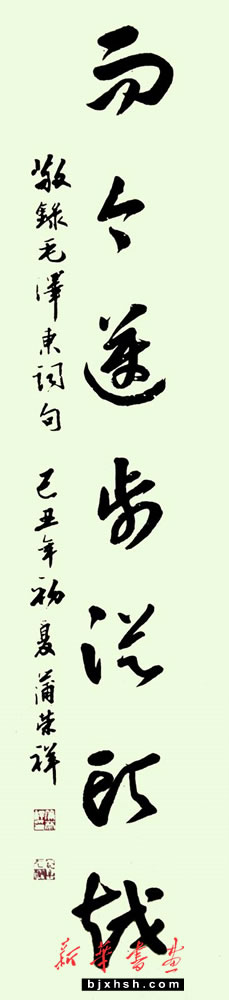 而今迈步従头越
敬錄毛澤東詞句 己丑年初夏 蒲荣祥
新華書畫
bjxhsh.com